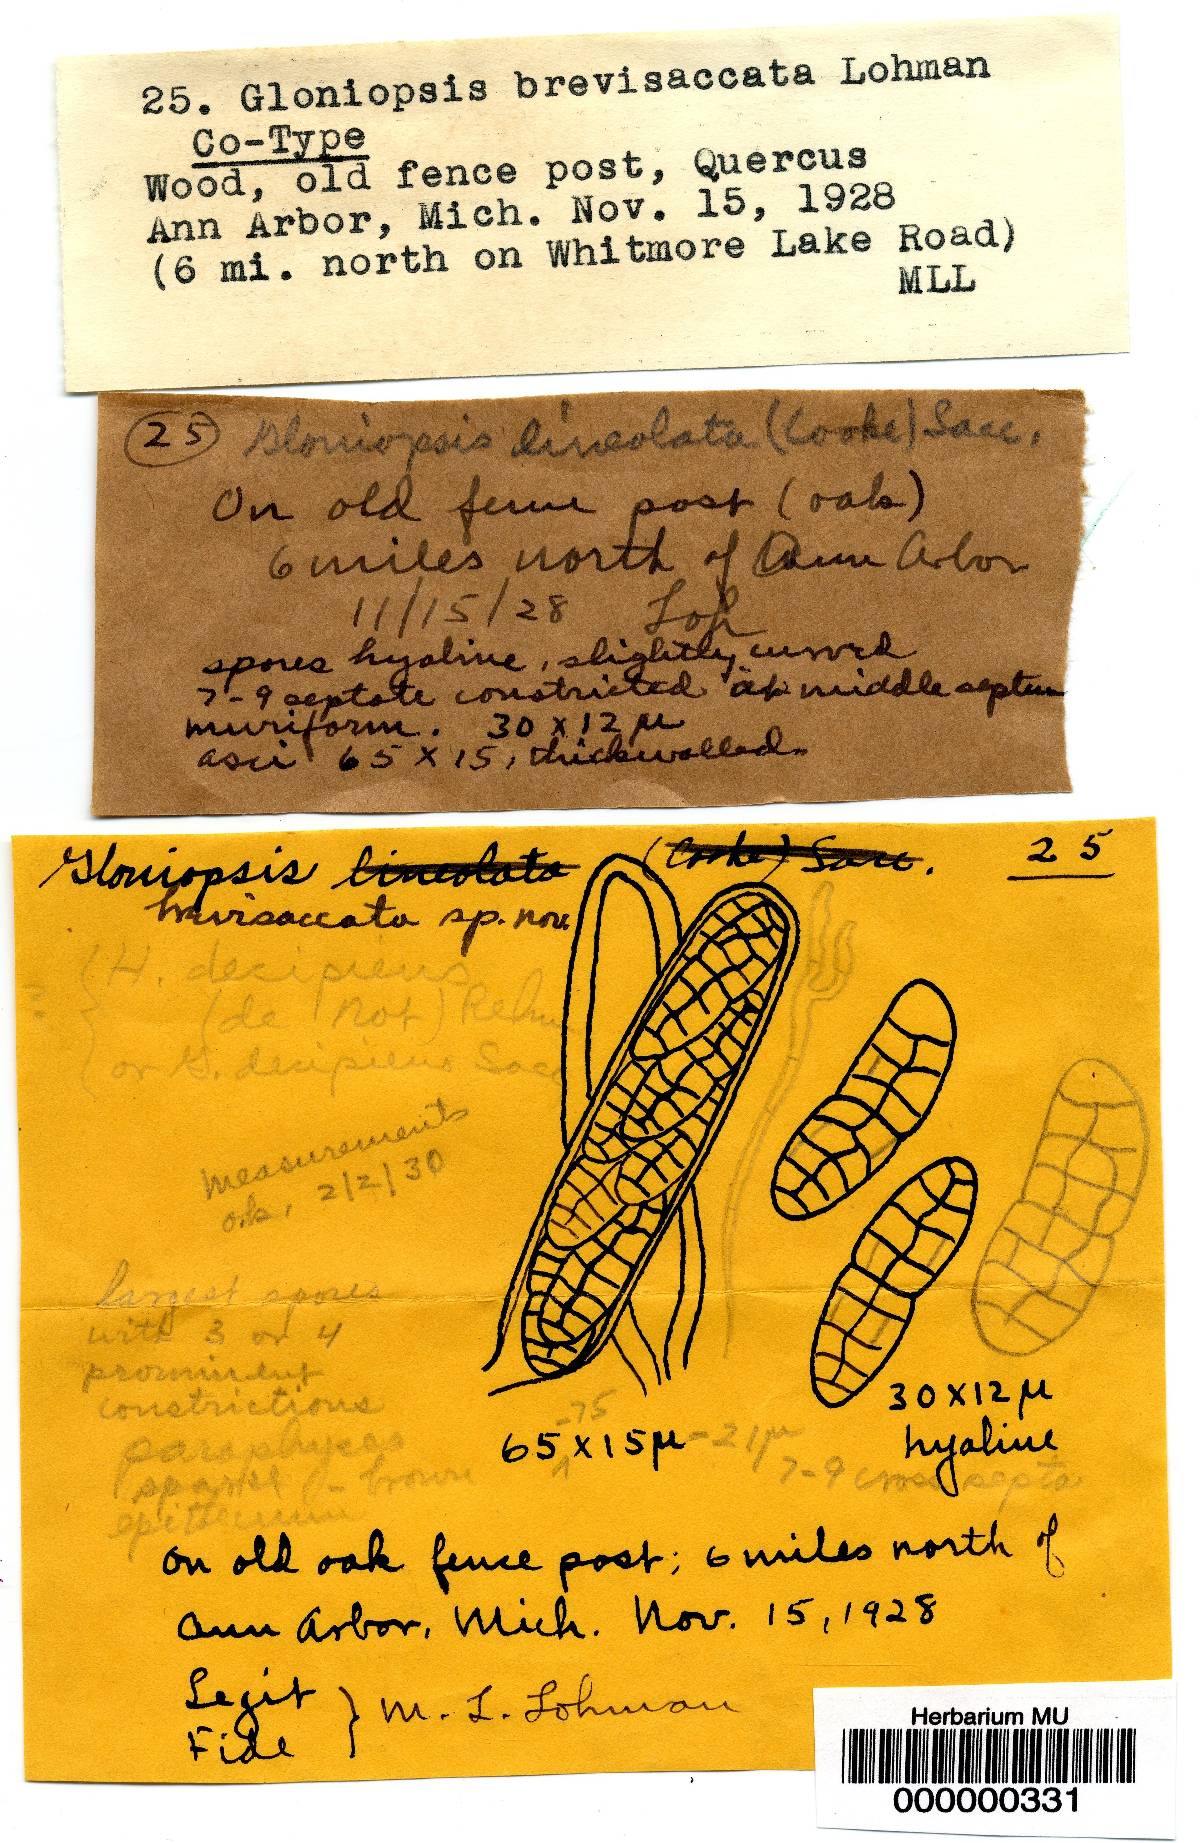 25. Gloniopsis brevisaccata Lohman
Co-Type
Wood, old fence post, Quercus
Ann Arbor, Mich. Nov. 15, 1928
(6 mi. north on Whitmore Lake Road)
MLL
25 Gloniopsis lineolata (Cooke) Sacc.
On old fence post (oak)
6 miles north of Ann Arbor
11/15/28 Loh
spores hyaline, slightly curved
7-9 septate constricted at middle septum
muriform. 30 x 12 µ
asci 65 x 15, thickwalled.
Gloniopsis lineolata (Cooke) Sacc. 25
brevisaccata sp. nov.
? { H. decipiens
(de Not) Rehm
or G. decipiens Sacc
measurements
ok, 2/2/30
largest spores
with 3 or 4
prominent
constrictions
paraphyses
sparse - brown
epithecium
65 x 15 µ - 21 µ
-75
30 x 12 µ
hyaline
7-9 cross septa
On old oak fence post; 6 miles north of
Ann Arbor, Mich. Nov. 15, 1928
Legit
Fide } M. L. Lohman
Herbarium MU
000000331